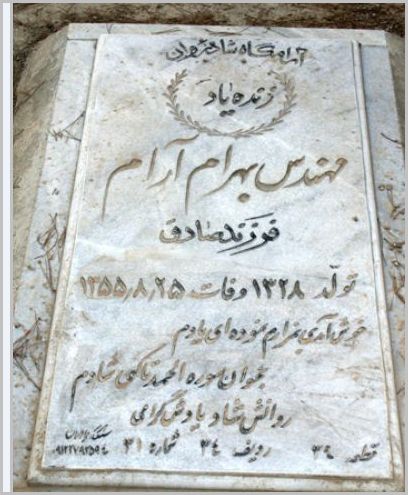 آرامگاه شادروان
زنده یاد
مهندس بهرام آرام
فرزند صادق
تولد ۱۳۲۸ وفات ۱۳۵۵٫۸٫۲۵
خوش آمدی بمزارم نموده ای یادم
بخوان سوره الحمد تا کنی شادم
روانش شاد یادش گرامی
قطعه ۳۹ ردیف ۳۴ شماره ۳۱